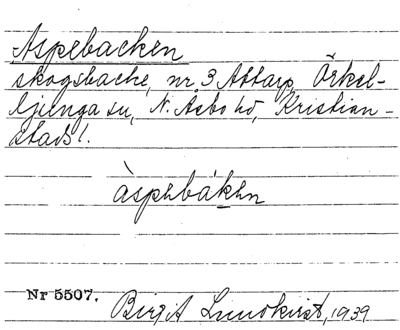 Aspebacken
skogsbacke, nr 3 Attarp, Örkel-
ljunga sn, N. Åsbo hd, Kristian-
stads l.
àspebáken
Nr 5507.
Birgit Lundkvist, 1939